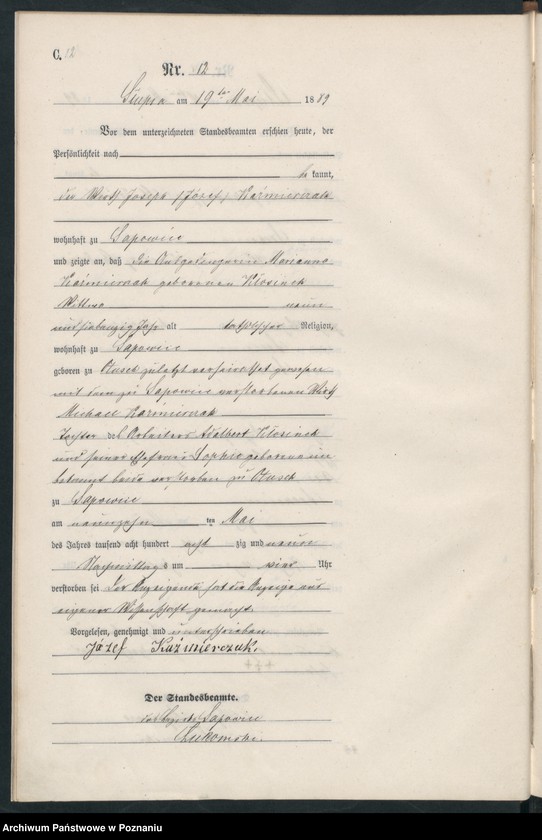 C. 12
Nr. 12
am 19ten Mai 1889
Vor dem unterzeichneten Standesbeamten erschien heute, der
Persönlichkeit nach
be kannt,
der Wirth Joseph (Józef) Kaźmierczak
wohnhaft zu Sapowice
und zeigte an, daß die Ausgedingerin Marianna
Kaźmierczak geborenen Kłosinek
Wittwe neun
und siebenzig Jahr alt katholischer Religion,
wohnhaft zu Sapowice
geboren zu Otusch zuletzt verheirathet gewesen
mit dem zu Sapowice verstorbenen Wirth
Michael Kaźmierczak
Tochter des Arbeiters Adalbert Kłosinek
und seiner Ehefrau Sophie geborene un
bekannt beide verstorben zu Otusch
zu Sapowice
am neunzehn ten Mai
des Jahres tausend acht hundert acht zig und neun
Nachmittags um vier Uhr
verstorben sei. Der Anzeigende hat die Anzeige aus
eigener Wissenschaft gemacht.
Vorgelesen, genehmigt und unterschrieben
Józef Kaźmierczak.
+++
Der Standesbeamte.
Sapowice
Archiwum Państwowe w Poznaniu